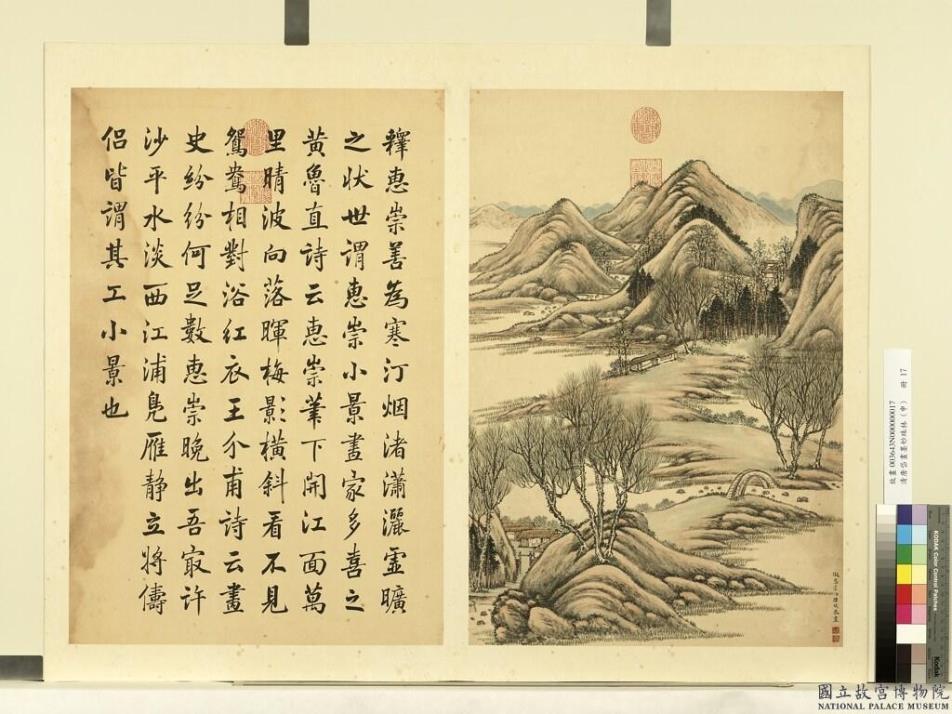 釋惠崇善為寒汀烟渚瀟灑虛曠
之狀世謂惠崇小景畫家多喜之
黃魯直詩云惠崇筆下開江面萬
里晴波向落暉梅影橫斜看不見
鴛鴦相對浴紅衣王介甫詩云畫
史紛紛何足數惠崇晚出吾冣許
沙平水淡西江浦鳧雁静立將儔
侣皆謂其工小景也
故畫 003643N000000017
清唐岱畫墨妙珠林(申) 冊 17
KODAK Color Control Patches
Kodak
國立故宮博物院
NATIONAL PALACE MUSEUM